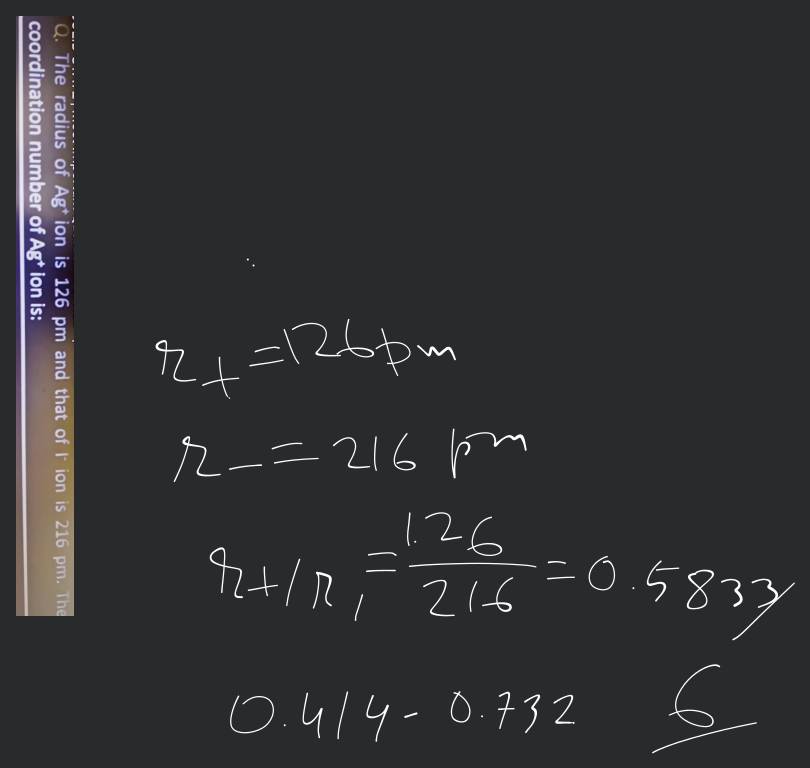 Q. The radius of Ag⁺ ion is 126 pm and that of I⁻ ion is 216 pm. The
coordination number of Ag⁺ ion is:
r₊ = 126 pm
r₋ = 216 pm
r₊/r₋ = 126/216 = 0.5833
0.414 - 0.732 6